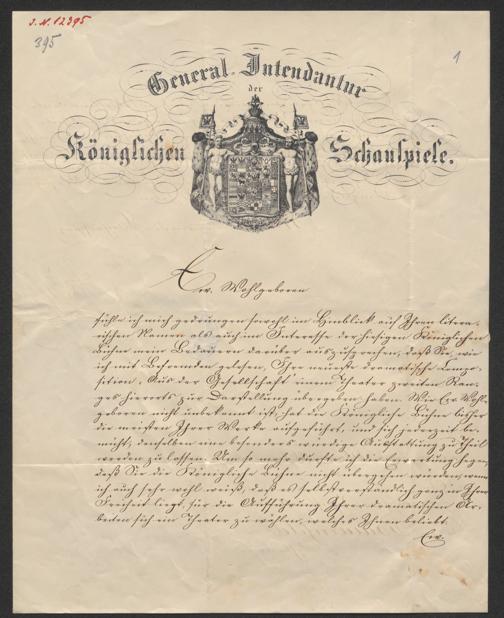 J. N. 12395
395
1
General-Intendantur
der
Königlichen Schauspiele.
Ew. Wohlgeboren
fühle ich mich gedrungen sowohl im Hinblick auf Ihren litera-
rischen Namen als auch im Interesse der hiesigen Königlichen
Bühne mein Bedauern darüber auszusprechen, daß Sie, wie
ich mit Befremden gelesen, Ihre neueste dramatische Compo-
sition, Aus der Gesellschaft einem Theater zweiten Ran-
ges hierorts zur Darstellung übergeben haben. Wie Ew. Wohl-
geboren nicht unbekannt ist, hat die Königliche Bühne bisher
die meisten Ihrer Werke aufgeführt, und sich jederzeit be-
müht, denselben eine besonders würdige Ausstattung zu Theil
werden zu lassen. Um so mehr durfte ich die Erwartung hegen,
daß Sie die Königliche Bühne nicht übergehen würden, wenn
ich auch sehr wohl weiß, daß es selbstverständlich ganz in Ihrer
Freiheit liegt, für die Aufführung Ihrer dramatischen Ar-
beiten sich ein Theater zu wählen, welches Ihnen beliebt.
Ew.